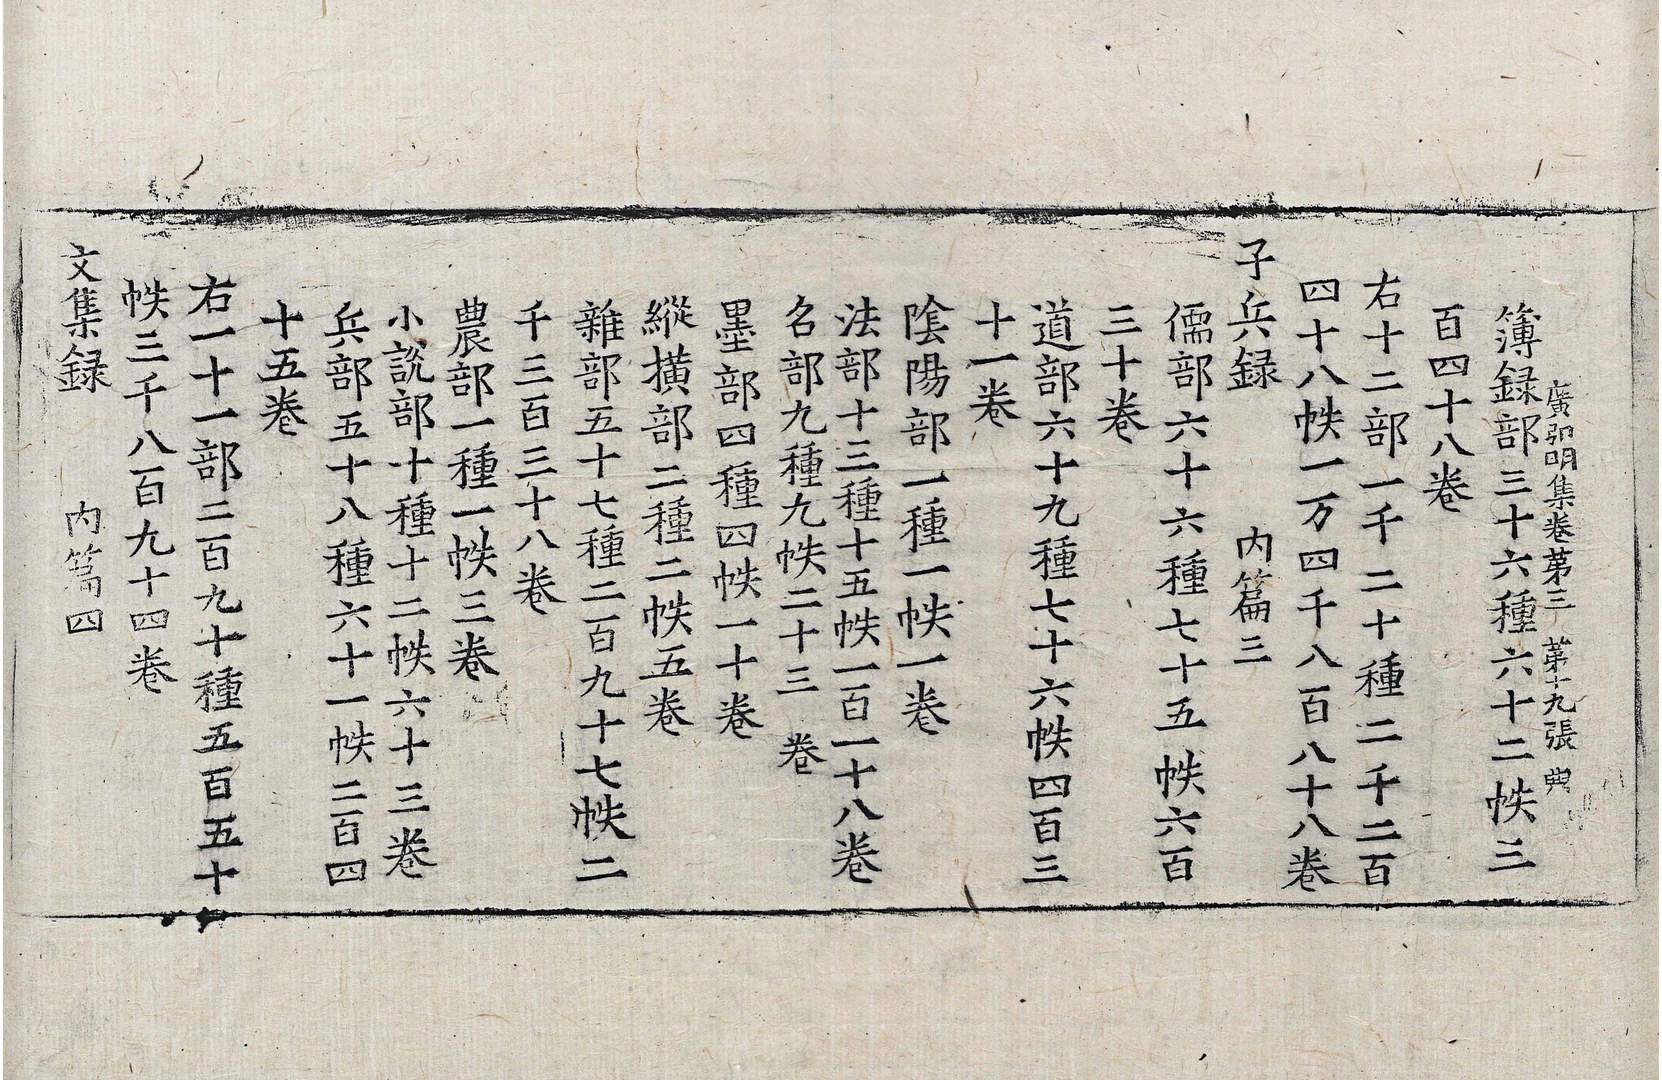 廣弘明集卷第三 第十九張 典
簿録部三十六種六十二帙三
百四十八卷
右十二部一千二十種二千二百
四十八帙一万四千八百八十八卷
子兵録 内篇三
儒部六十六種七十五帙六百
三十卷
道部六十九種七十六帙四百三
十一卷
陰陽部一種一帙一卷
法部十三種十五帙一百一十八卷
名部九種九帙二十三卷
墨部四種四帙一十卷
縱横部二種二帙五卷
雜部五十七種二百九十七帙二
千三百三十八卷
農部一種一帙三卷
小説部十種十二帙六十三卷
兵部五十八種六十一帙二百四
十五卷
右一十一部二百九十種五百五十
帙三千八百九十四卷
文集録 内篇四